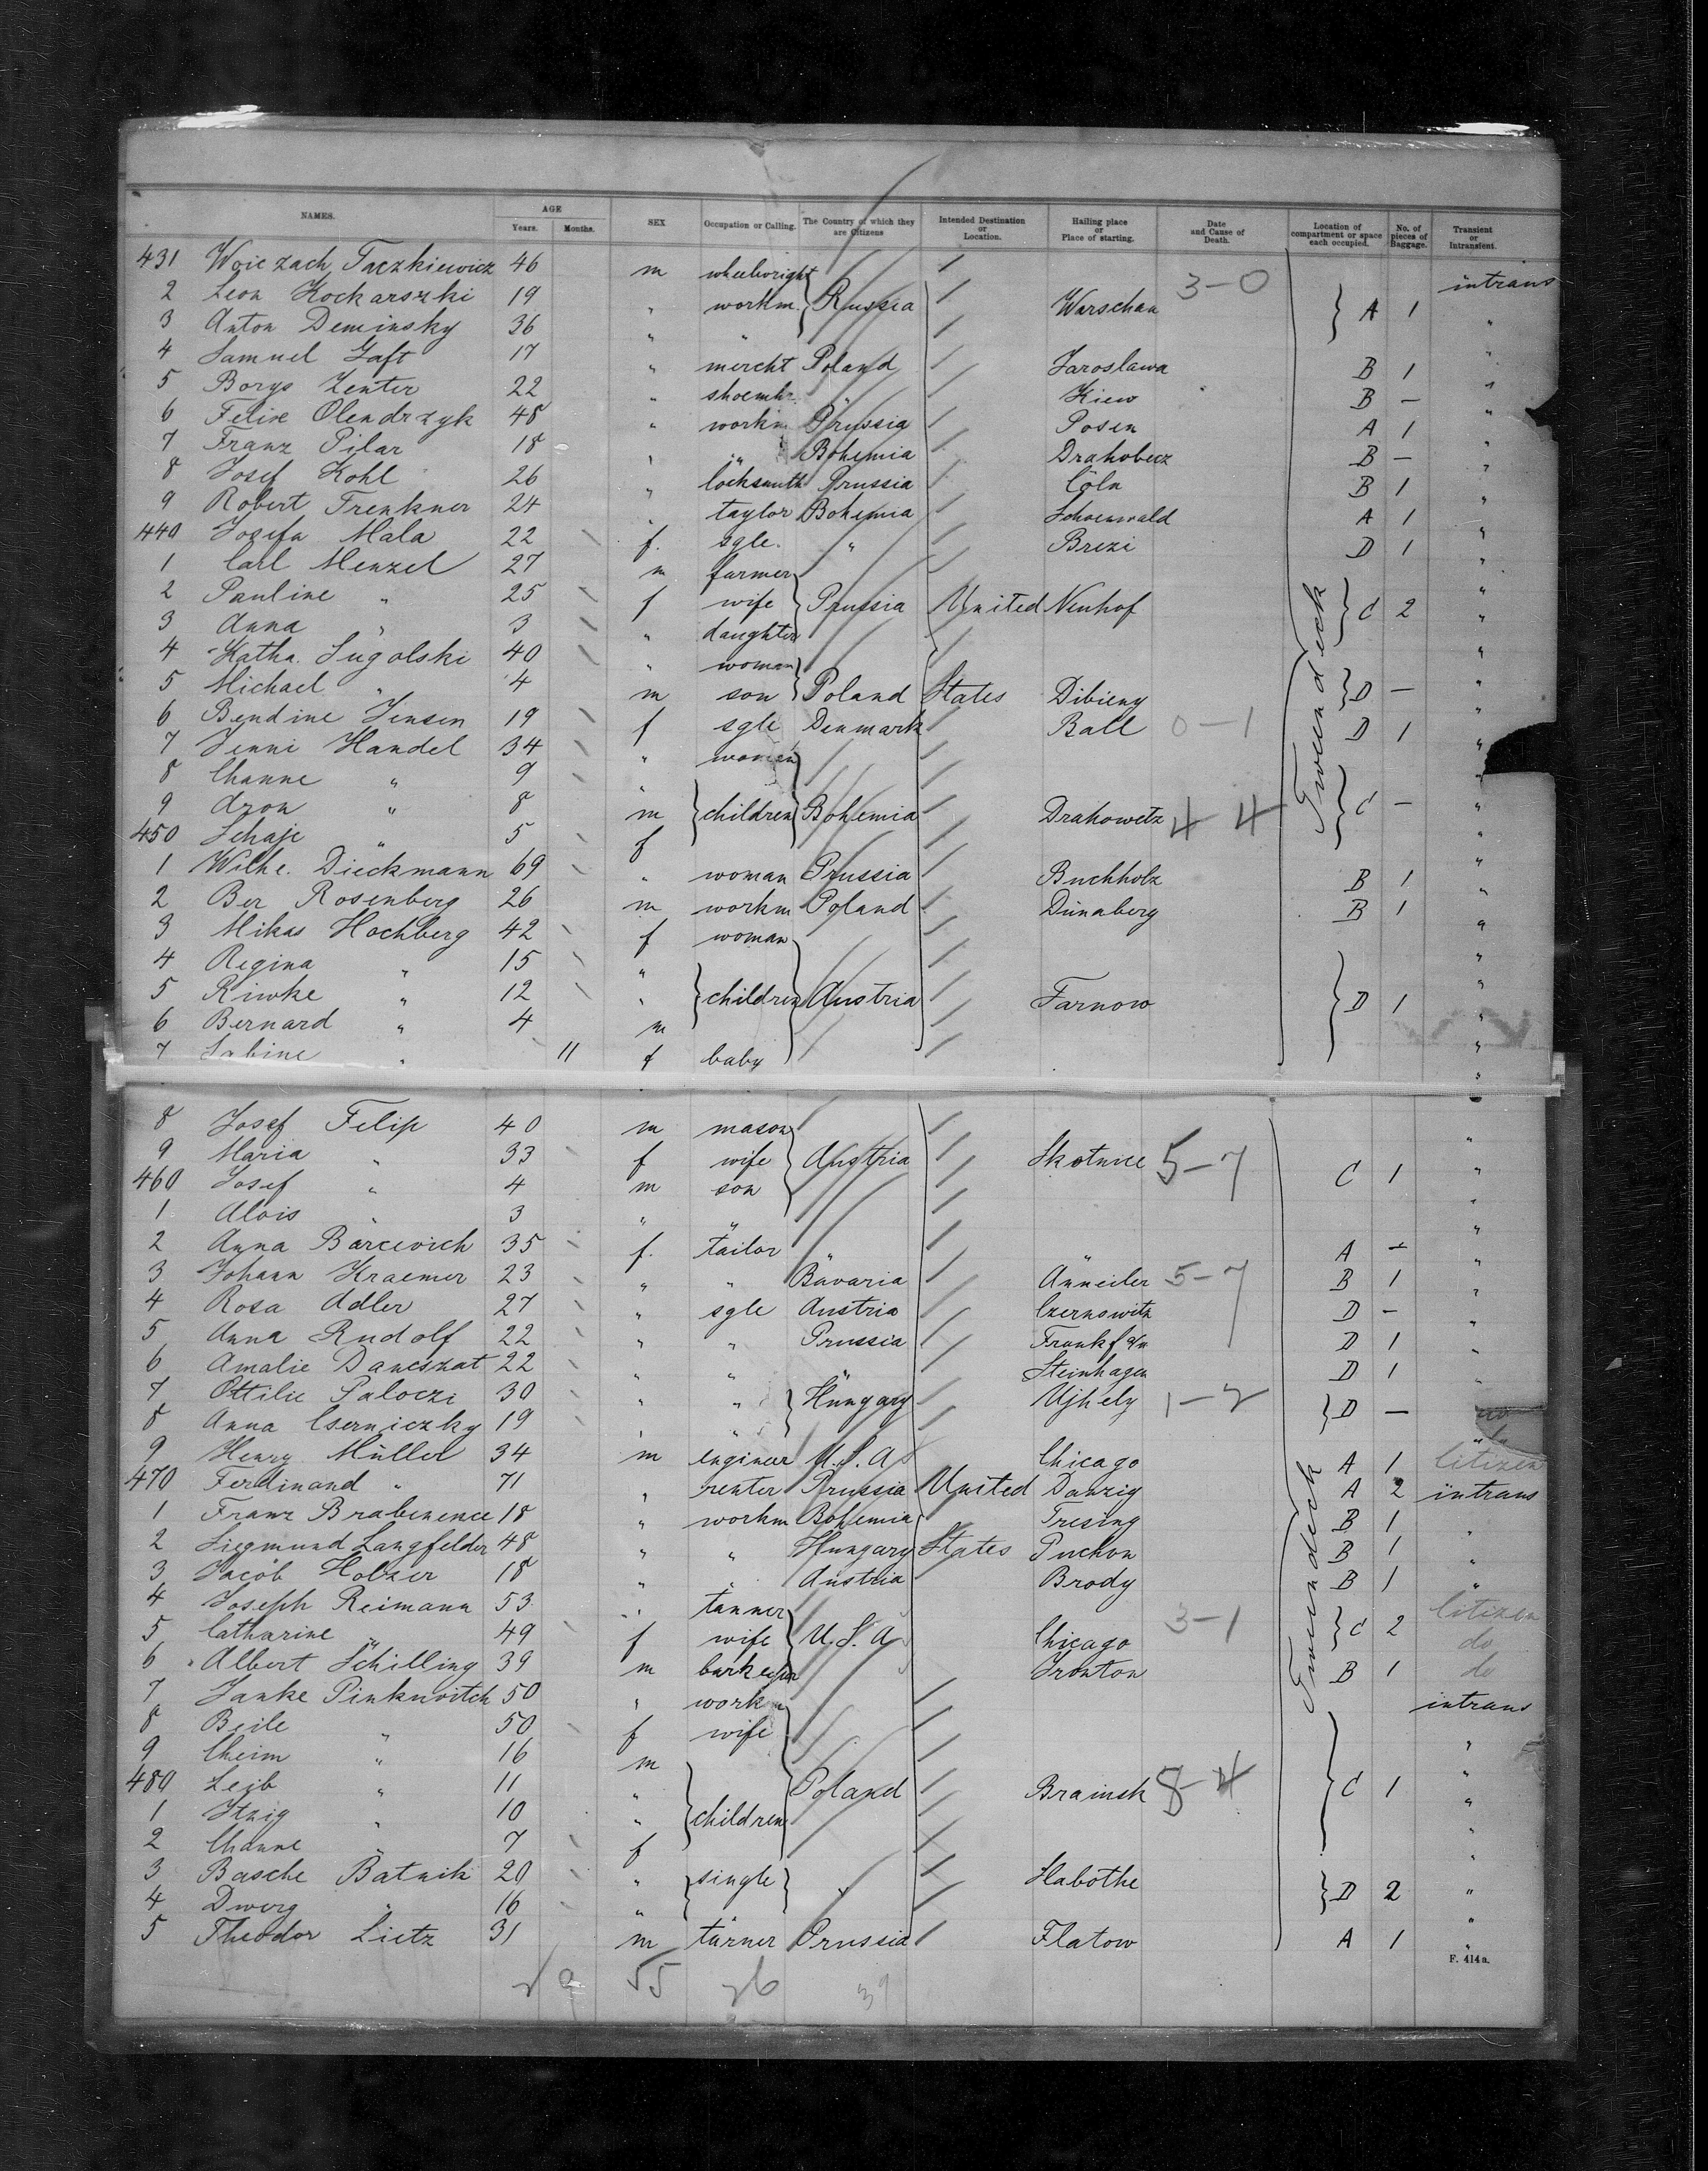 NAMES. AGE Years. Months. SEX Occupation or Calling. The Country of which they are Citizens Intended Destination or Location. Hailing place or Place of starting. Date and Cause of Death. Location of compartment or space each occupied. No. of pieces of Baggage. Transient or Intransient.
431 Woiczach Taczkiewicz 46 m wheelwright intrans
2 Leon Kockarszki 19 " workm. Russia Warschau 3-0 A 1 "
3 Anton Deminsky 36 " " "
4 Samuel Jaft 17 " mercht Poland Jaroslawa B 1 "
5 Borys Zenter 22 " shoemkr. " Kiew B — "
6 Felix Olendrzyk 48 " workm Prussia Posen A 1 "
7 Franz Pilar 18 " " Bohemia Drahobecz B — "
8 Josef Kohl 26 " locksmith Prussia Cöln B 1 "
9 Robert Trenkner 24 " taylor Bohemia Schoenwald A 1 "
440 Josefa Mala 22 f. sgle. " Brezi D 1 "
1 Carl Menzel 27 m farmer "
2 Pauline " 25 f wife Prussia United Neuhof C 2 "
3 Anna " 3 " daughter "
4 Katha. Sugolski 40 " woman "
5 Michael " 4 m son Poland States Dibieny D — "
6 Bendine Jensen 19 f sgle Denmark Rall 0-1 D 1 "
7 Jenni Handel 34 " woman "
8 Channe " 9 " "
9 Aron " 8 m children Bohemia Drahowetz 4 4 C — "
450 Schaje " 5 f "
1 Wilhe. Dieckmann 69 " woman Prussia Buchholz B 1 "
2 Ber Rosenberg 26 m workm Poland Dünaberg B 1 "
3 Mikas Hochberg 42 f woman "
4 Regina " 15 " "
5 Riwke " 12 " children Austria Tarnow D 1 "
6 Bernard " 4 m "
7 Sabine " 11 f baby "
Tweendeck
8 Josef Felip 40 m mason "
9 Maria " 33 f wife Austria Skotnice 5-7 C 1 "
460 Josef " 4 m son "
1 Alois " 3 " " "
2 Anna Barcevich 35 f. tailor " " A — "
3 Johann Kraemer 23 " " Bavaria Anneiler 5-7 B 1 "
4 Rosa Adler 27 " sgle Austria Czernowitz D — "
5 Anna Rudolf 22 " " Prussia Frankf a/m D 1 "
6 Amalie Daneszat 22 " " Steinhagen D 1 "
7 Ottilie Paloczi 30 " " Hungary Ujhely 1-2 D —
8 Anna Cserniczky 19 " "
9 Henry Müller 34 m engineer U.S.A Chicago A 1 Citizen
470 Ferdinand " 71 " renter Prussia United Danzig A 2 intrans
1 Franz Brabenence 18 " workm Bohemia Tresing B 1 "
2 Siegmund Langfelder 48 " " Hungary States Puchon B 1 "
3 Jacob Holzer 18 " " Austria Brody B 1 "
4 Joseph Reimann 53 " tanner Citizen
5 Catharine " 49 f wife U.S.A Chicago 3-1 C 2 do
6 Albert Schilling 39 m barkeeper Ironton B 1 do
7 Janke Pinknvitch 50 " work intrans
8 Beile " 50 f wife "
9 Cheim " 16 m "
480 Leib " 11 " Poland Brainsk 8-4 C 1 "
1 Itzig " 10 " children "
2 Channe " 7 f "
3 Basche Batnik 20 " single " Slabothe D 2 "
4 Dwerg " 16 " "
5 Theodor Lietz 31 m turner Prussia Flatow A 1 "
Tweendeck
F. 414a.
55 26 39